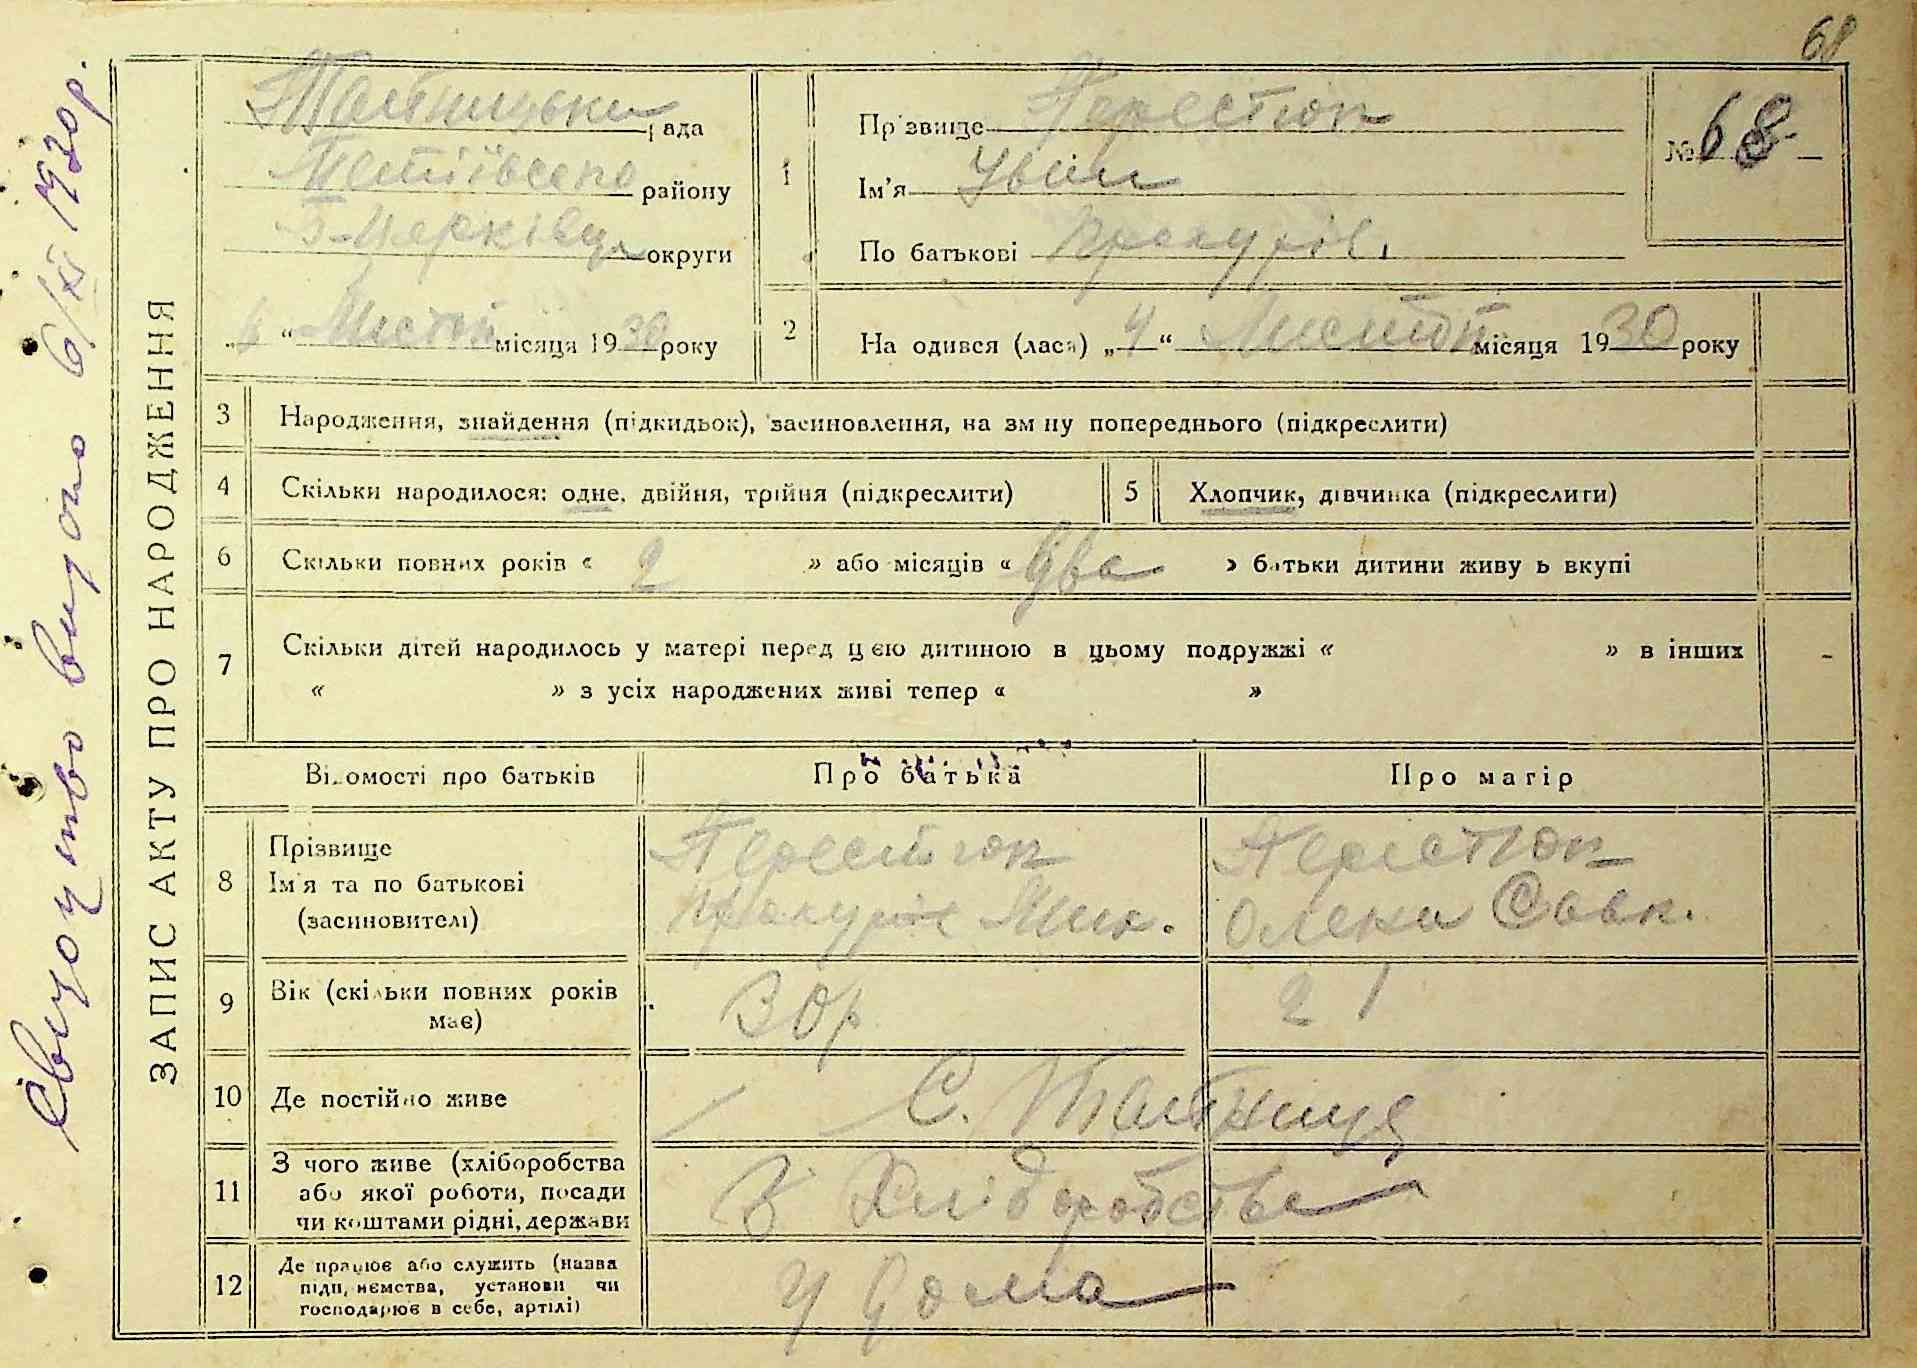 68
Свидоцтво видано 6/XI 1930р.
ЗАПИС АКТУ ПРО НАРОДЖЕННЯ
рада
Тетіївсько району
Б-Церківц округи
„6“ Листоп місяця 1930 року
1
Прізвище Перестюк
Ім'я Иван
По батькові Прокурів.
№ 68
2
На одився (лася) „4“ Листоп місяця 1930 року
3 Народження, знайдення (підкидьок), засиновлення, на зміну попереднього (підкреслити)
4 Скільки народилося: одне, двійня, трійня (підкреслити)
5 Хлопчик, дівчинка (підкреслити)
6 Скільки повних років « 2 » або місяців « два » батьки дитини живуть вкупі
7 Скільки дітей народилось у матері перед цією дитиною в цьому подружжі « » в інших
« » з усіх народжених живі тепер « »
Відомості про батьків Про батька Про матір
8 Прізвище
Ім'я та по батькові
(засиновителі)
Перестюк
Мик.
Перестюк
Олена Савк.
9 Вік (скільки повних років
має)
30р
21
10 Де постійно живе
С.
11 З чого живе (хліборобства
або якої роботи, посади
чи коштами рідні, держави
З Хліборобства
12 Де працює або служить (назва
підприємства, установи чи
господарює в себе, артілі)
У дома